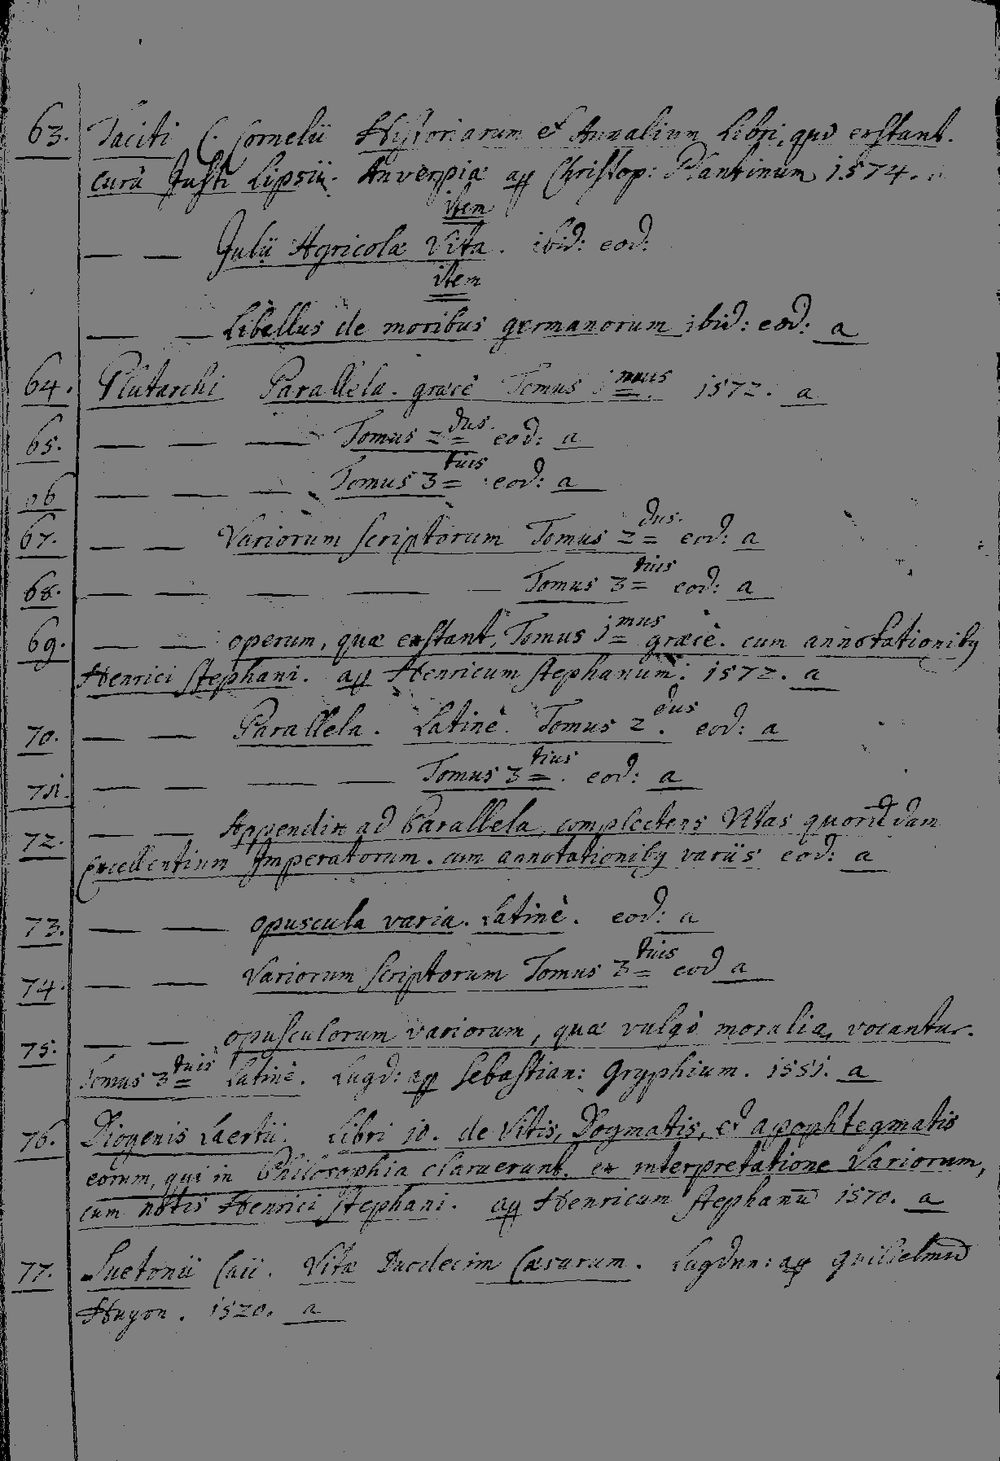 63. Taciti C. Cornelii Historiarum et Annalium Libri, qui exstant.
curâ Justi Lipsii. Anverpiæ ap Christop: Plantinum 1574.
item
— — Julii Agricolæ Vita. ibid: eod:
item
— — Libellus de moribus germanorum ibid: eod: a
64. Plutarchi Parallela. græcè Tomus 1mus. 1572. a
65. — — — Tomus 2dus. eod: a
66 — — — — Tomus 3tius eod: a
67. — — Variorum scriptorum Tomus 2dus. eod: a
68. — — — — — — Tomus 3tius eod: a
69. — — operum, quæ exstant, Tomus 1mus græcè. cum annotationibq
Henrici Stephani. ap Henricum Stephanum. 1572. a
70. — — Parallela. Latinè. Tomus 2dus. eod: a
71. — — — — — Tomus 3tius. eod: a
72. — — Appendix ad Parallela, complectens Vitas quorūdam
Excellentium Imperatorum. cum annotationibq variis eod: a
73. — — opuscula varia. Latinè. eod: a
74. — — Variorum scriptorum Tomus 3tius eod a
75. — — opusculorum variorum, quæ vulgò moralia, vocantur.
Tomus 3tius Latinè. Lugd: ap Sebastian: Gryphium. 1551. a
76. Diogenis Laertii. Libri 10. de Vitis, Dogmatis, et apophtegmatis
eorum, qui in Philosophia claruerunt. ex interpretatione Variorum,
cum notis Henrici Stephani. ap Henricum Stephanū 1570. a
77. Suetonii Caii. Vitæ Duodecim Cæsarum. Lugdun: ap Guilielmū
Huyon. 1520. a